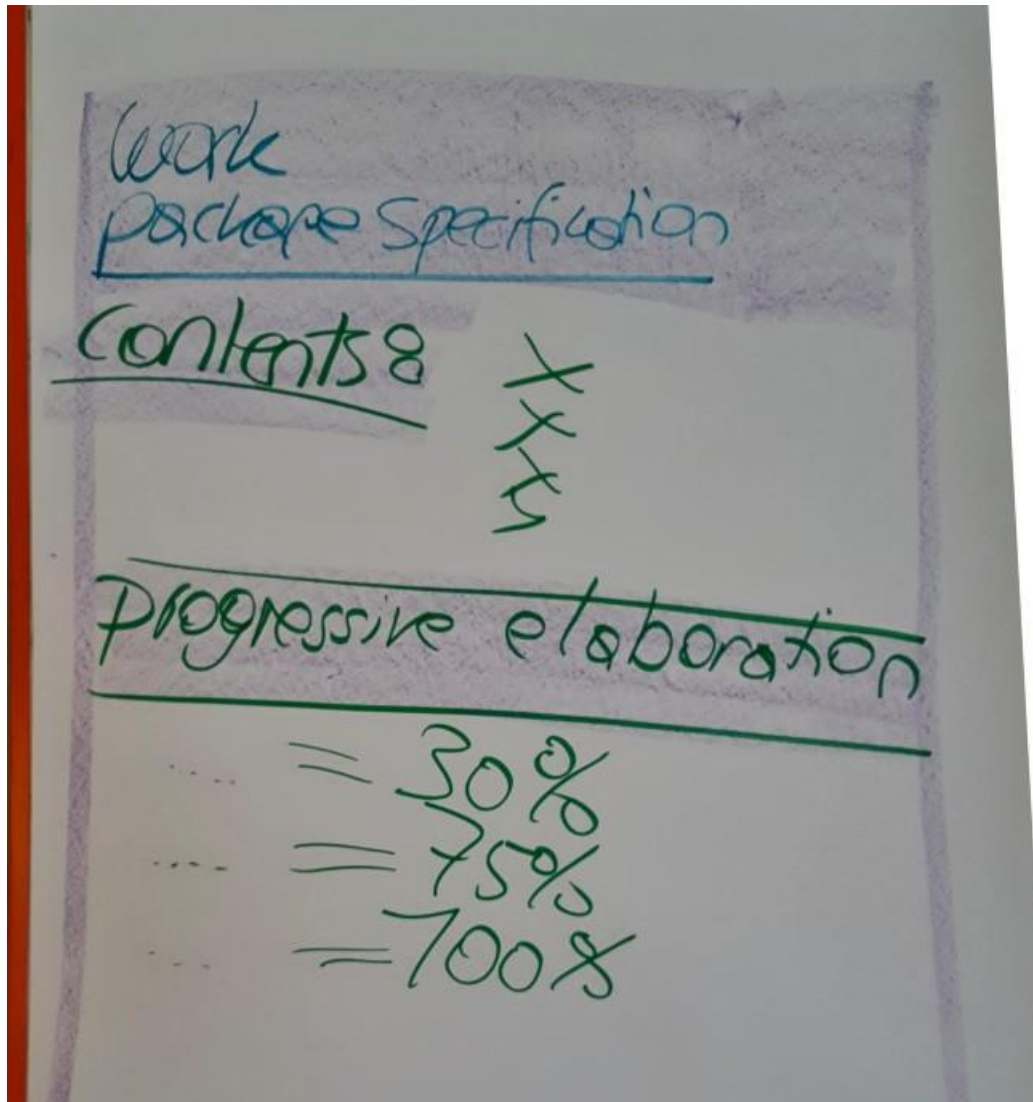 Work
package Specification
Contents:
X
X
X
progressive elaboration
.... = 30%
.... = 75%
... = 100%